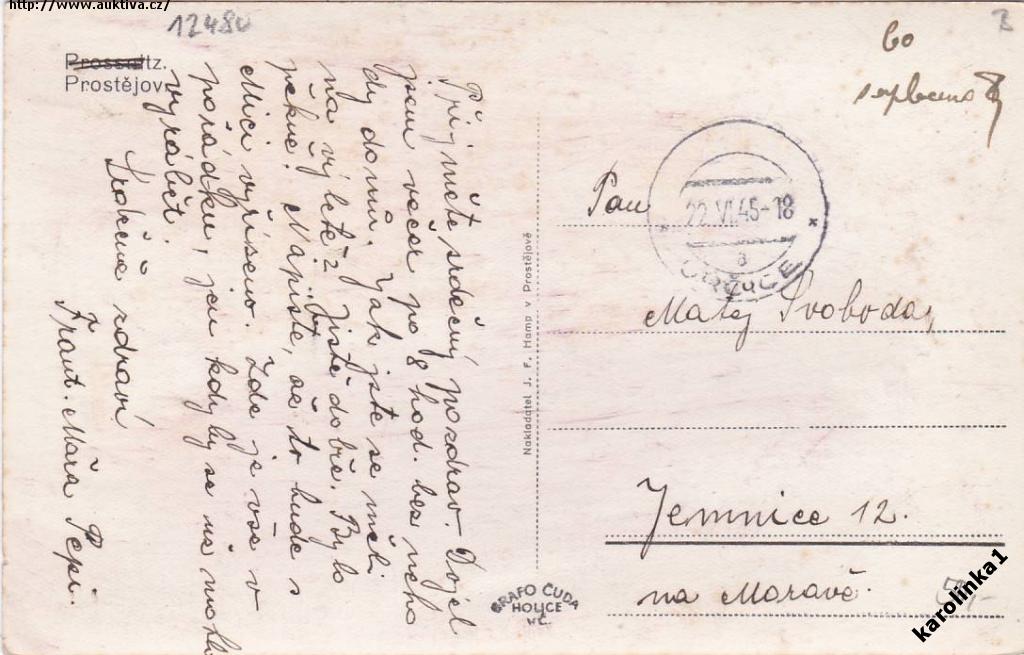 http://www.auktiva.cz/
12480
Prossnitz.
Prostějov.
Přijměte srdečný pozdrav. Dojel
jsem večer po 8 hod. bez neho
dy domů. Jak jste se měli
na výletě? Jistě dobře. Bylo
pěkně! Napište, co to bude s
Mici vyřízeno. Zde je vše v
pořádku, jen kdyby se už mohlo
vyrábět.
Srdečně zdraví
Frant. Mářa Pepi.
Nakladatel J. F. Hamp v Prostějově
GRAFO ČUDA
HOLICE
60
Pan
22.VI.45-18
a
URČICE
Matěj Svoboda,
Jemnice 12.
na Moravě.
50,-
karolinka1